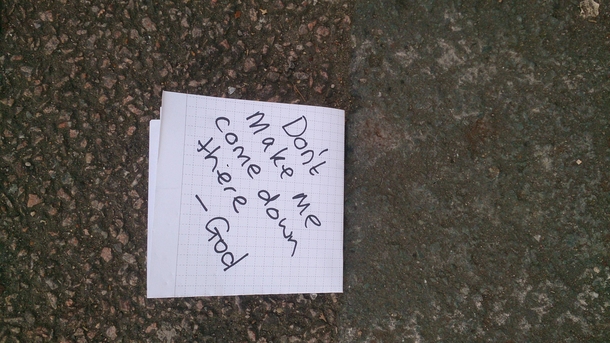 Don't
Make me
come down
there
- God